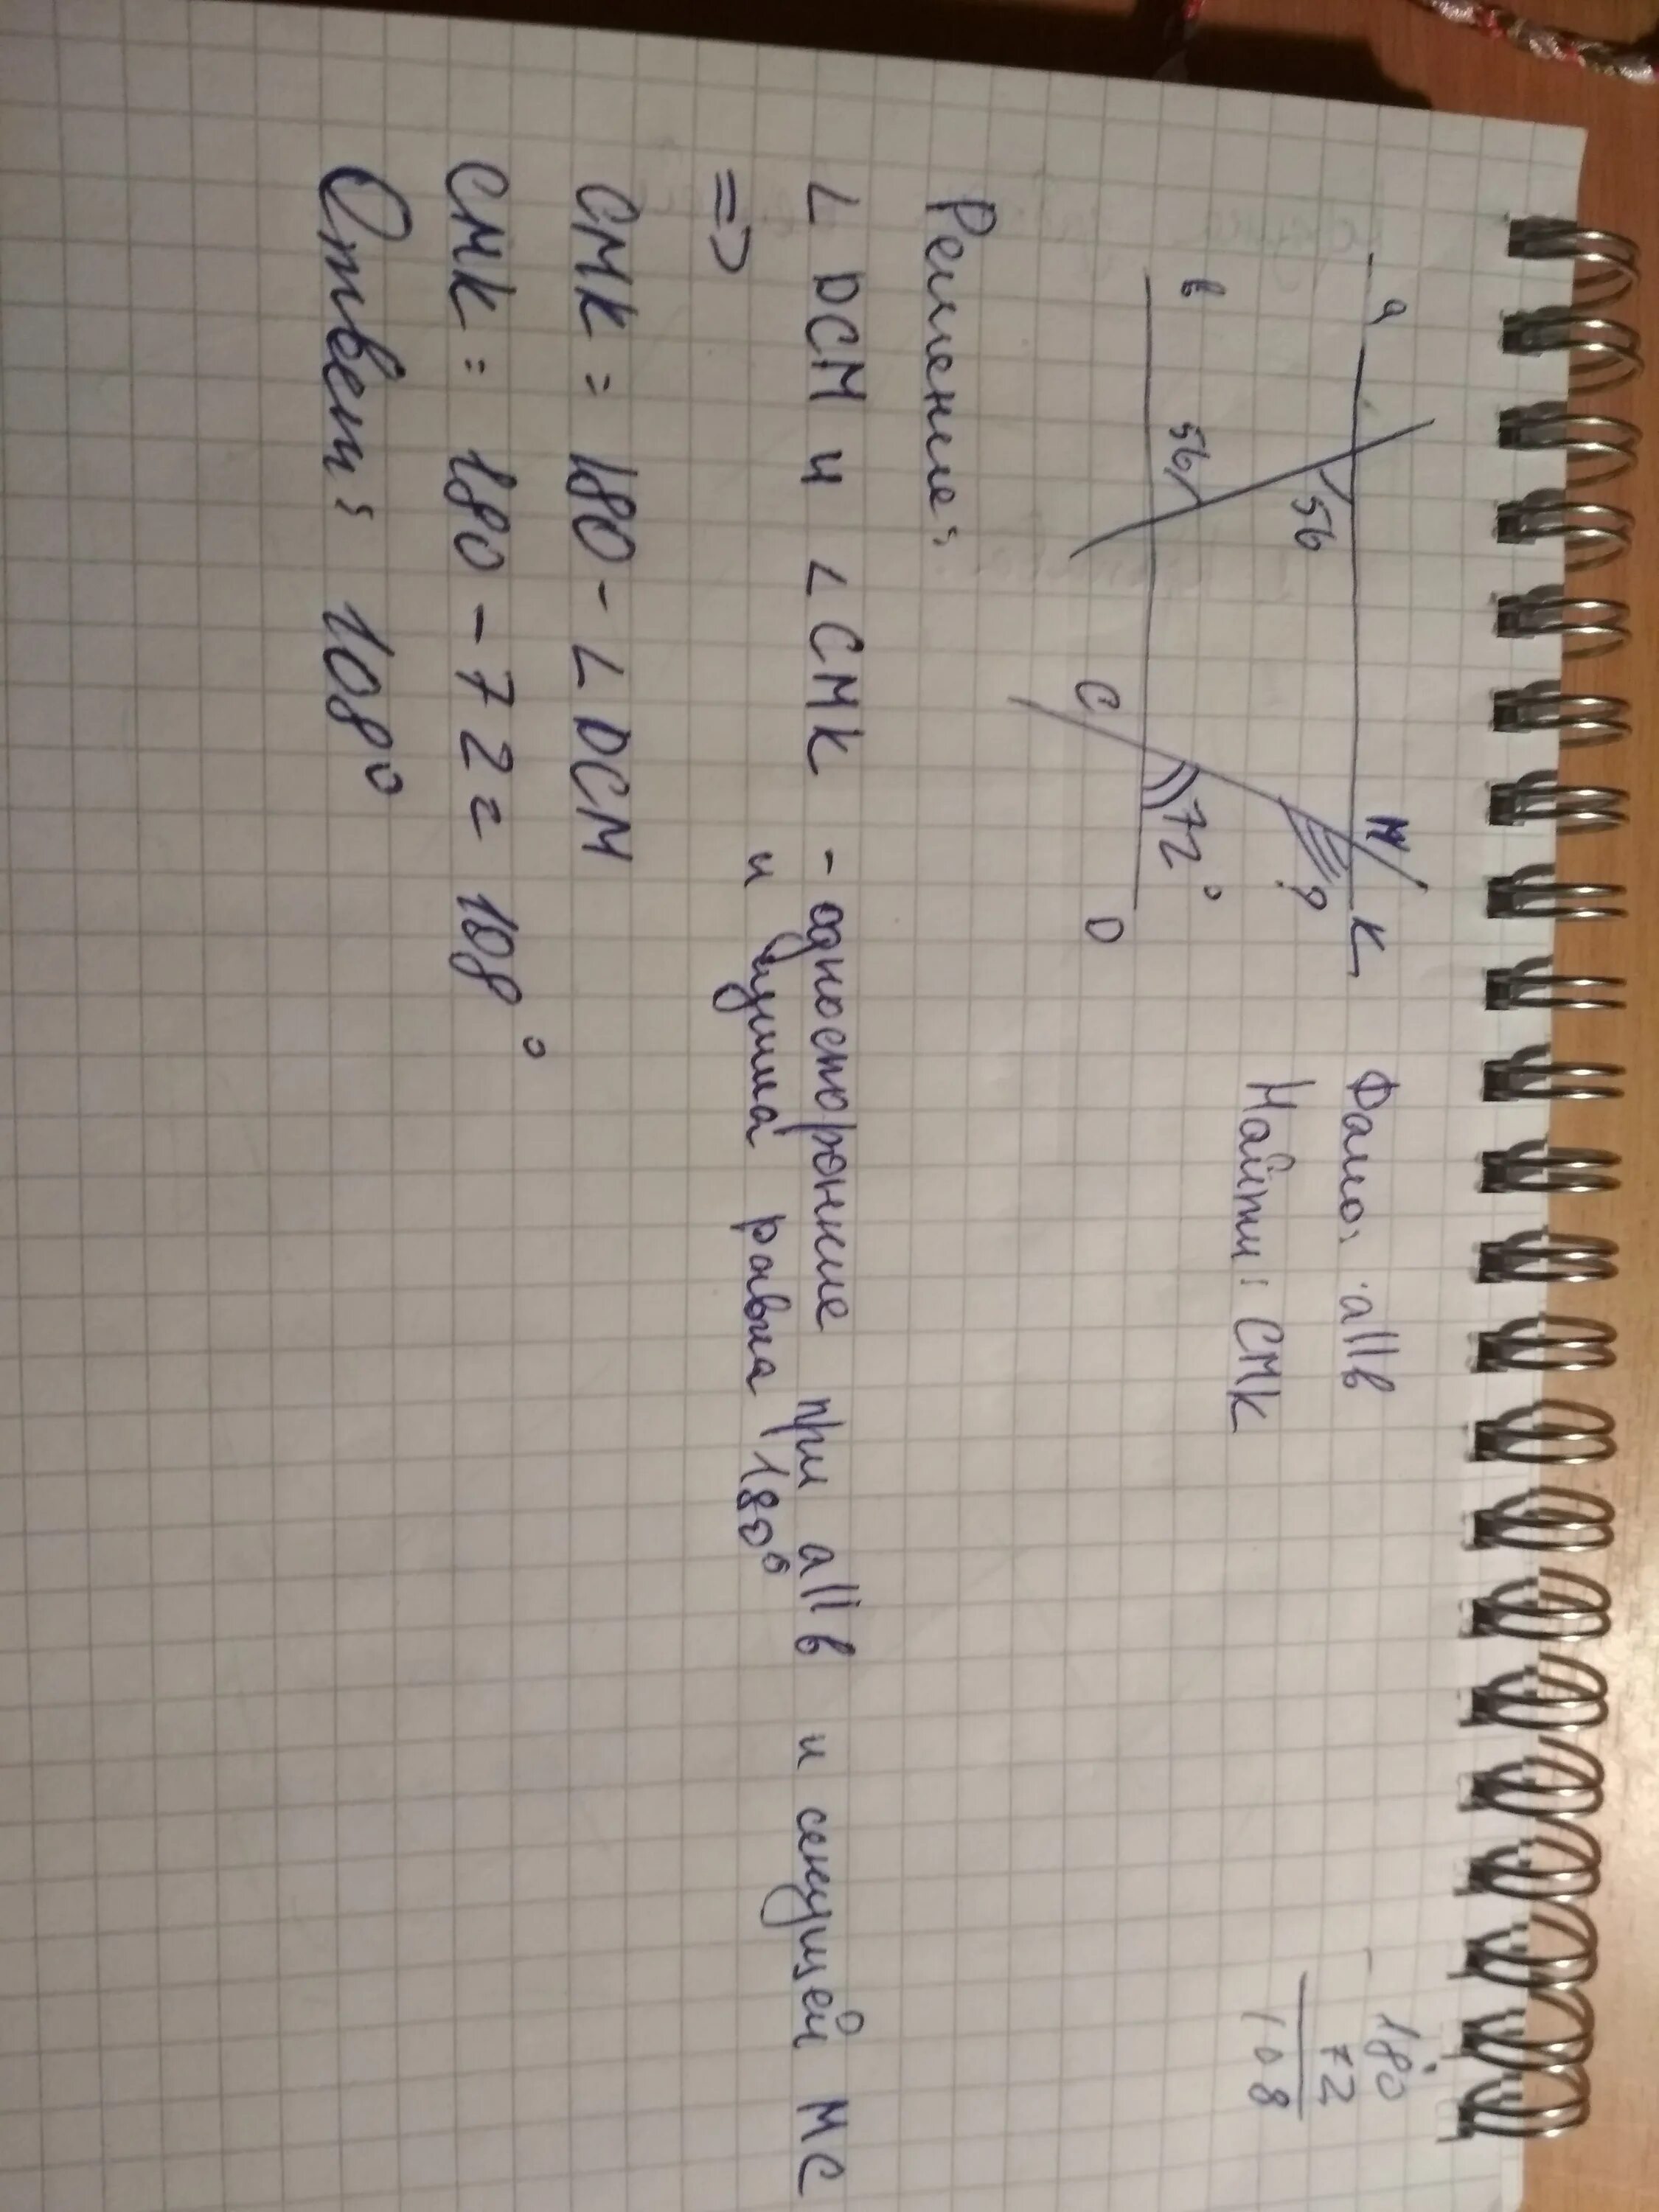 a
M
K
Дано: a||в
180
56
?
Найти: CMK
72
108
в
56
72°
C
D
Решение:
∠ DCM и ∠ CMK - односторонние при a||в и секущей MC
=> и сумма равна 180°
CMK = 180 - ∠ DCM
CMK = 180 - 72 = 108°
Ответ: 108°